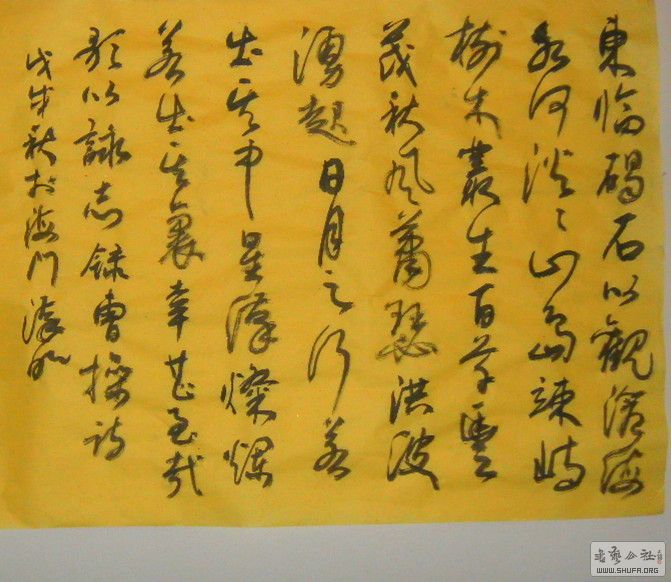 東臨碣石以觀滄海
水何淡〻山島竦峙
樹木叢生百草豐
茂秋風蕭瑟洪波
湧起日月之行若
出其中星漢燦爛
若出其裏幸甚至哉
歌以詠志錄曹操詩
戊戌秋於海門漢
書藝公社
WWW.SHUFA.ORG